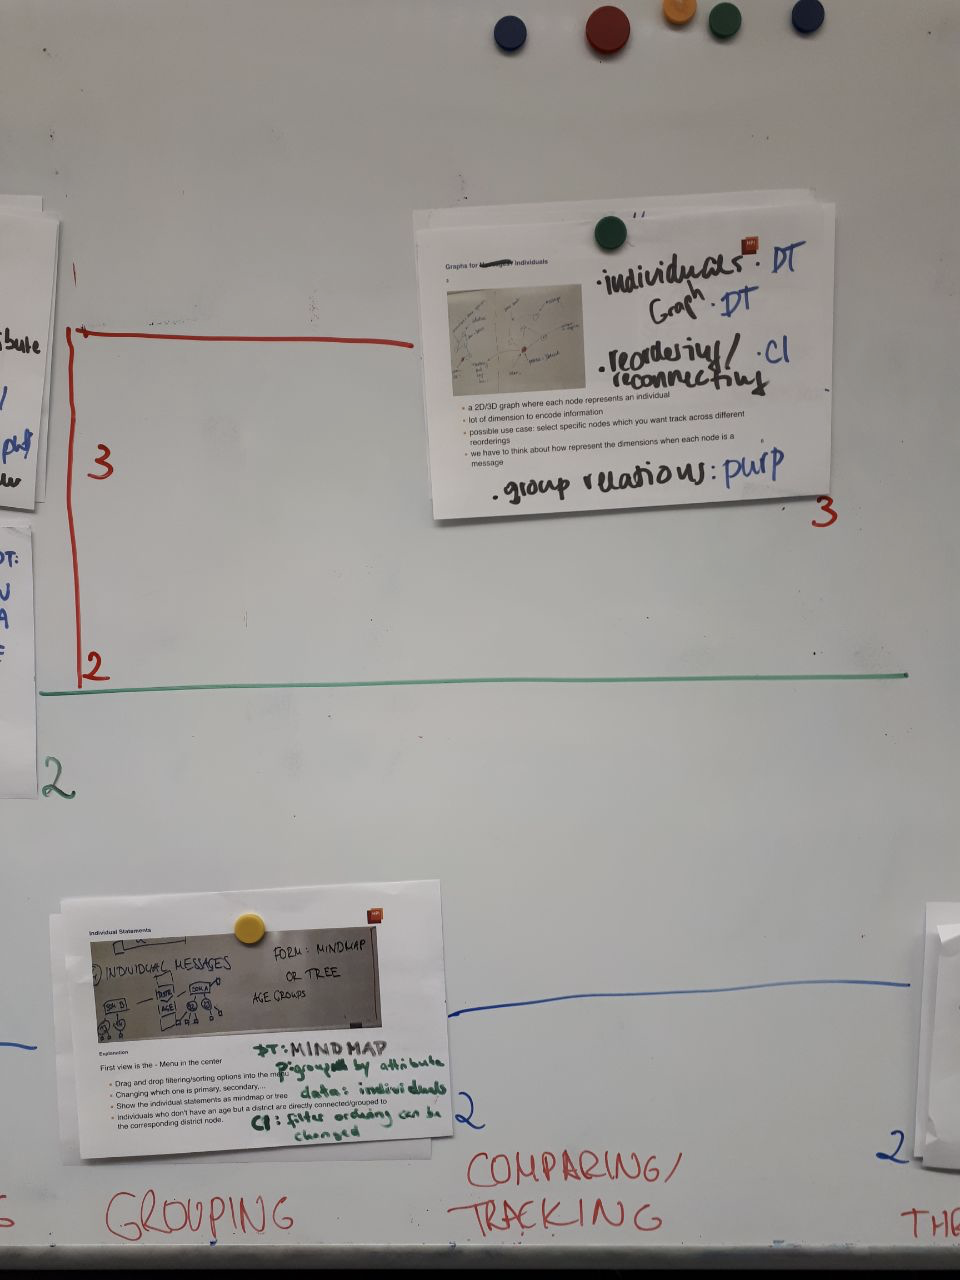 bute
3
2
2
Graphs for Individuals
3
HPI
· individuals · DT
Graph · DT
· reordering/ · CI
reconnecting
a 2D/3D graph where each node represents an individual
lot of dimension to encode information
possible use case: select specific nodes which you want track across different
reorderings
we have to think about how represent the dimensions when each node is a
message
. group relations: purp
3
Individual Statements
HPI
INDIVIDUAL MESSAGES
FORM: MINDMAP
OR TREE
AGE GROUPS
AGE
Explanation
First view is the - Menu in the center
Drag and drop filtering/sorting options into the menu
Changing which one is primary, secondary,...
Show the individual statements as mindmap or tree
Individuals who don't have an age but a district are directly connected/grouped to
the corresponding district node.
DT: MINDMAP
P: group by attribute
data: individuals
CI: filter ordering can be
changed
2
2
GROUPING
COMPARING/
TRACKING
THE